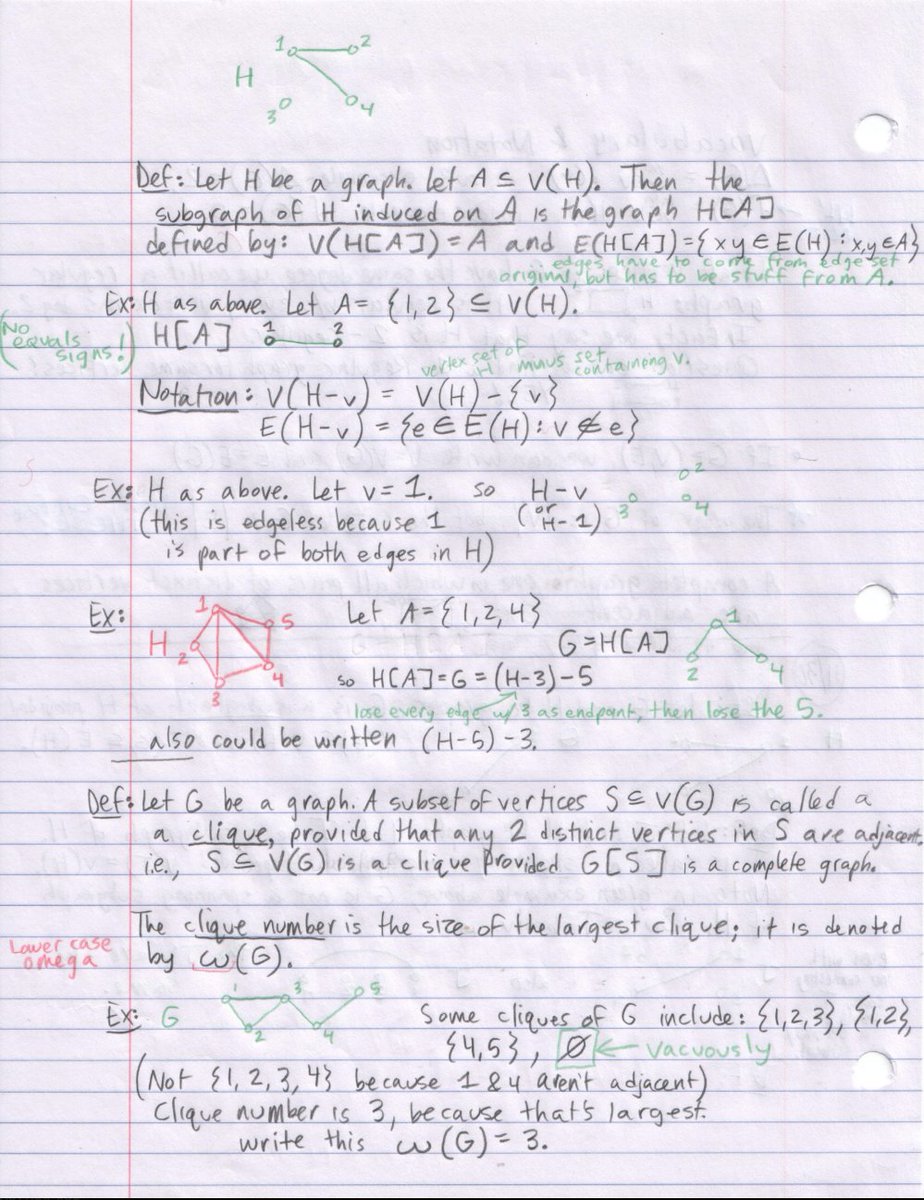 1 2
H
3 4
Def: Let H be a graph. Let A ⊆ V(H). Then the
subgraph of H induced on A is the graph H[A]
defined by: V(H[A]) = A and E(H[A]) = { xy ∈ E(H) : x,y ∈ A}
edges have to come from edge set
original, but has to be stuff from A.
Ex: H as above. Let A = {1,2} ⊆ V(H).
(No equals signs!) H[A] 1 2
vertex set of H minus set containing v.
Notation: V(H-v) = V(H) - {v}
E(H-v) = {e ∈ E(H) : v ∉ e}
Ex: H as above. Let v = 1. so H-v 2
(this is edgeless because 1 (or H-1) 3 4
is part of both edges in H)
Ex: 1 5 Let A = {1,2,4}
H 2 G = H[A] 1
3 4 so H[A] = G = (H-3)-5 2 4
lose every edge w/ 3 as endpoint, then lose the 5.
also could be written (H-5)-3.
Def: Let G be a graph. A subset of vertices S ⊆ V(G) is called a
a clique, provided that any 2 distinct vertices in S are adjacent.
i.e., S ⊆ V(G) is a clique provided G[S] is a complete graph.
The clique number is the size of the largest clique; it is denoted
Lower case omega by ω(G).
Ex: G 1 3 5 2 4 Some cliques of G include: {1,2,3}, {1,2},
{4,5}, ∅ ← vacuously
(Not {1,2,3,4} because 1 & 4 aren't adjacent)
Clique number is 3, because that's largest.
write this ω(G) = 3.